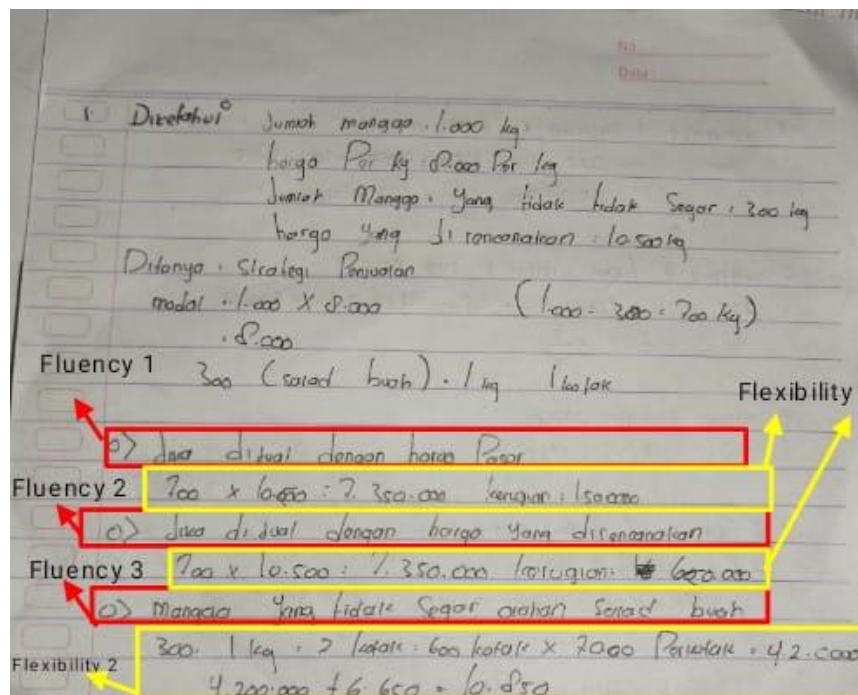 No
Date
1. Diketahui : Jumlah mangga : 1.000 kg
harga Per kg : 8.000 Per kg
Jumlah Mangga . yang tidak tidak Segar : 300 kg
harga yang di rencanakan : 10.500 kg
Ditanya : Strategi Penjualan
modal : 1.000 X 8.000 (1.000 - 300 = 700 kg)
: 8.000
300 (salad buah) . 1 kg 1 kotak
Fluency 1
Flexibility
o> Jika dijual dengan harga Pasar
Fluency 2
700 x = 7.350.000 kerugian : 150.000
o> Jika di jual dengan harga yang direncanakan
Fluency 3
700 x 10.500 : 7.350.000 kerugian : 650.000
o> Mangga yang tidak Segar buah
Flexibility 2
300. 1 kg = 2 kotak = 600 kotak x 7000 Perkotak = 4.2.0000
4.200.000 + 6.650 = 10.850